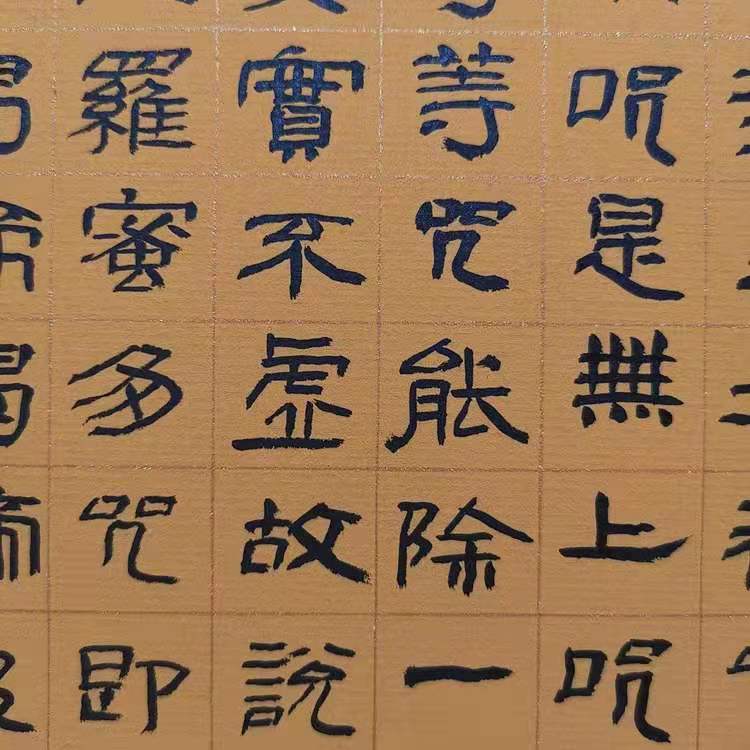 咒是無上咒
等咒能除一
實不虛故說
羅蜜多咒即